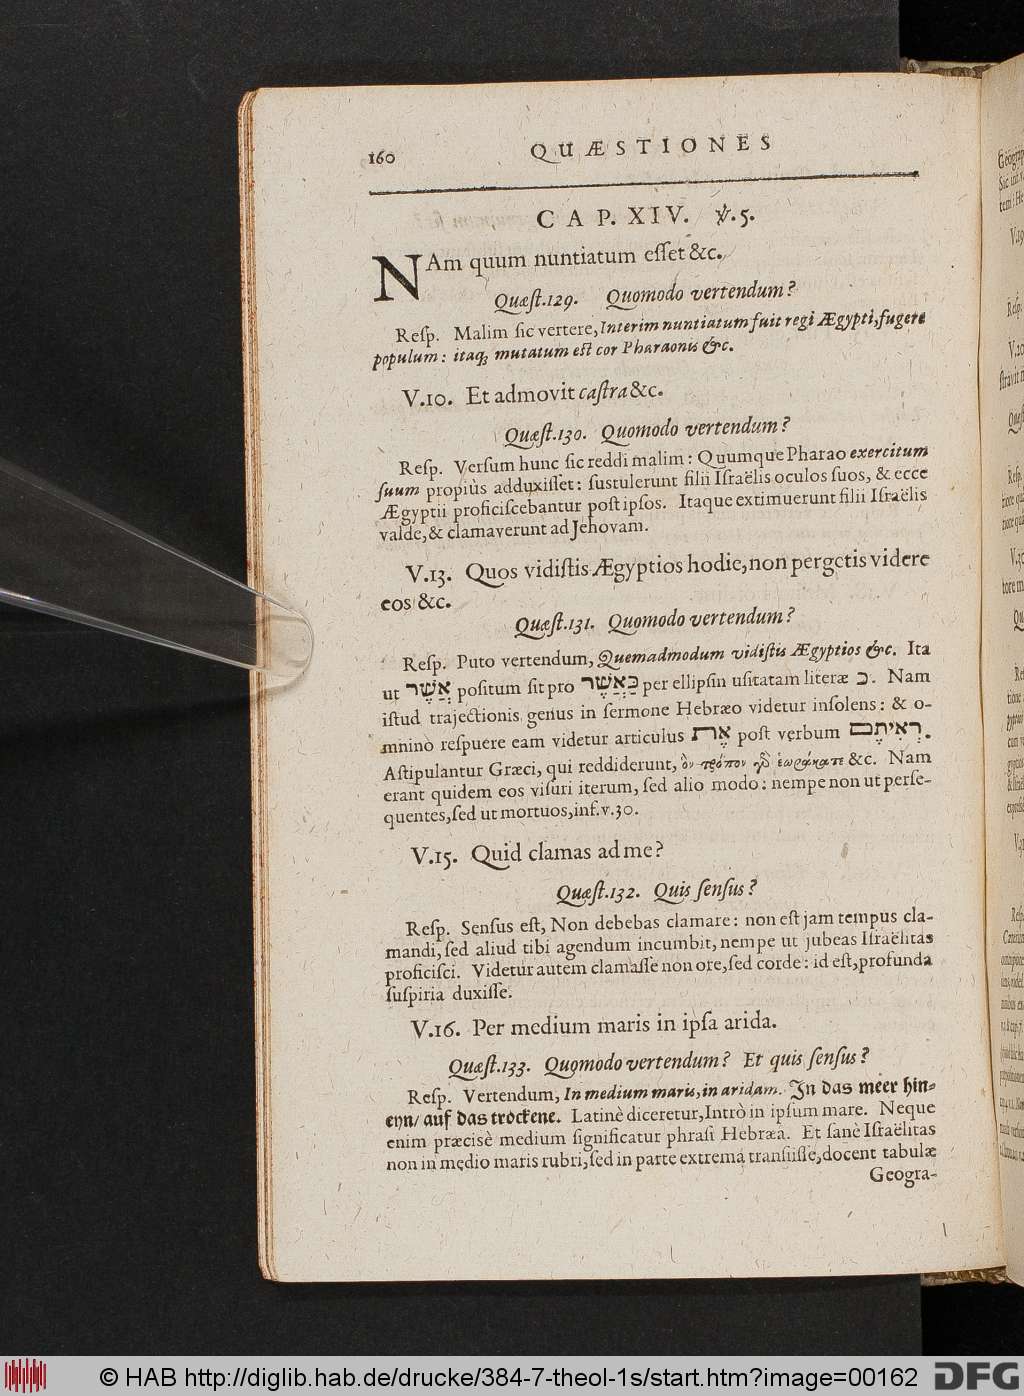 160
QUÆSTIONES
CAP. XIV. ℣.5.
NAm quum nuntiatum eſſet &c.
Quæſt.129. Quomodo vertendum?
Reſp. Malim ſic vertere, Interim nuntiatum fuit regi Ægypti, fugere
populum: itaq; mutatum eſt cor Pharaonis &c.
V.10. Et admovit caſtra &c.
Quæſt.130. Quomodo vertendum?
Reſp. Verſum hunc ſic reddi malim: Quumque Pharao exercitum
ſuum propiùs adduxiſſet: ſustulerunt filii Iſraëlis oculos ſuos, & ecce
Ægyptii proficiſcebantur poſt ipſos. Itaque extimuerunt filii Iſraëlis
valde, & clamaverunt ad Jehovam.
V.13. Quos vidiſtis Ægyptios hodie, non pergetis videre
eos &c.
Quæſt.131. Quomodo vertendum?
Reſp. Puto vertendum, Quemadmodum vidiſtis Ægyptios &c. Ita
ut אֲשֶׁר poſitum ſit pro כַּאֲשֶׁר per ellipſin uſitatam literæ כ. Nam
iſtud trajectionis genus in ſermone Hebræo videtur inſolens: & o-
mninò reſpuere eam videtur articulus אֶת poſt verbum רְאִיתֶם.
Aſtipulantur Græci, qui reddiderunt, ὃν τρόπον γὸ ἑωράκατε &c. Nam
erant quidem eos viſuri iterum, ſed alio modo: nempe non ut perſe-
quentes, ſed ut mortuos, inf. v.30.
V.15. Quid clamas ad me?
Quæſt.132. Quis ſenſus?
Reſp. Senſus eſt, Non debebas clamare: non eſt jam tempus cla-
mandi, ſed aliud tibi agendum incumbit, nempe ut jubeas Iſraëlitas
proficiſci. Videtur autem clamaſſe non ore, ſed corde: id eſt, profunda
ſuſpiria duxiſſe.
V.16. Per medium maris in ipſa arida.
Quæſt.133. Quomodo vertendum? Et quis ſenſus?
Reſp. Vertendum, In medium maris, in aridam. In das meer hin-
eyn/ auf das trockene. Latinè diceretur, Intrò in ipſum mare. Neque
enim præcisè medium ſignificatur phraſi Hebræâ. Et ſanè Iſraëlitas
non in medio maris rubri, ſed in parte extremâ tranſiiſſe, docent tabulæ
Geogra-
© HAB http://diglib.hab.de/drucke/384-7-theol-1s/start.htm?image=00162
DFG